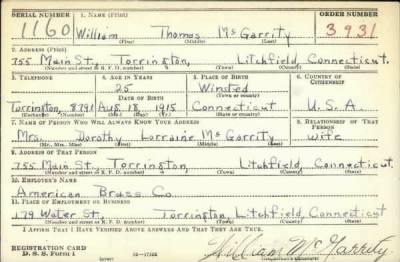 SERIAL NUMBER 1. NAME (Print) ORDER NUMBER
1160 William Thomas McGarrity 3931
(First) (Middle) (Last)
2. ADDRESS (Print)
755 Main St, Torrington, Litchfield, Connecticut.
(Number and street or R. F. D. number) (Town) (County) (State)
3. TELEPHONE 4. AGE IN YEARS 5. PLACE OF BIRTH 6. COUNTRY OF CITIZENSHIP
25 Winsted
DATE OF BIRTH (Town or county)
Torrington, 8791 Aug. 18, 1915 Connecticut U.S.A.
(Exchange) (Number) (Mo.) (Day) (Yr.) (State or country)
7. NAME OF PERSON WHO WILL ALWAYS KNOW YOUR ADDRESS 8. RELATIONSHIP OF THAT PERSON
Mrs. Dorothy Lorraine McGarrity wife
(Mr., Mrs., Miss) (First) (Middle) (Last)
9. ADDRESS OF THAT PERSON
755 Main St, Torrington, Litchfield, Connecticut
(Number and street or R. F. D. number) (Town) (County) (State)
10. EMPLOYER'S NAME
American Brass Co.
11. PLACE OF EMPLOYMENT OR BUSINESS
179 Water St, Torrington, Litchfield, Connecticut
(Number and street or R. F. D. number) (Town) (County) (State)
I AFFIRM THAT I HAVE VERIFIED ABOVE ANSWERS AND THAT THEY ARE TRUE.
REGISTRATION CARD
D. S. S. Form 1 William McGarrity